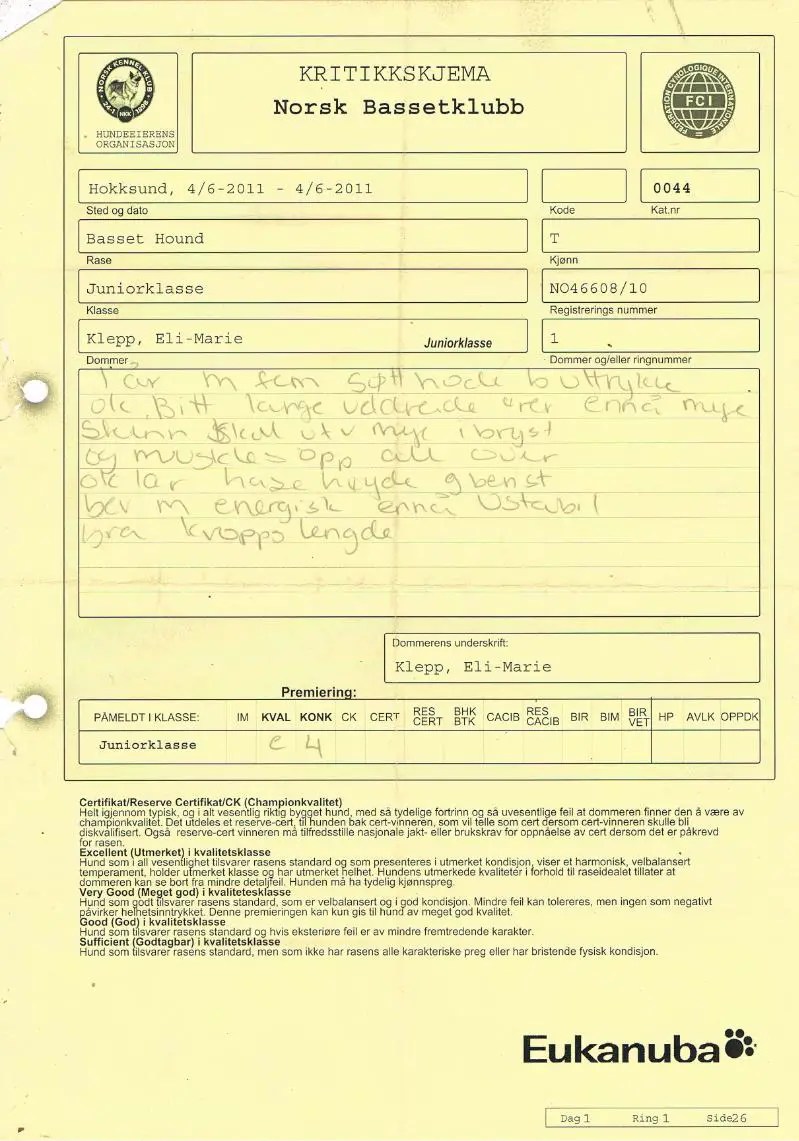 NORSK KENNEL KLUB
24-1 NKK 1898
HUNDEEIERENS
ORGANISASJON
KRITIKKSKJEMA
Norsk Bassetklubb
FEDERATION CYNOLOGIQUE INTERNATIONALE
FCI
Hokksund, 4/6-2011 - 4/6-2011
0044
Sted og dato
Kode
Kat.nr
Basset Hound
T
Rase
Kjønn
Juniorklasse
NO46608/10
Klasse
Registrerings nummer
Klepp, Eli-Marie
Juniorklasse
1
Dommer
Dommer og/eller ringnummer
1 år m fem hode b uttrykk
ok Bitt lange ører ennå mye
Skinn skal utv mye i bryst
og muskles opp all over
ok lår hase høyde g benst
bev m energisk ennå Ustabil
bra kropps lengde
Dommerens underskrift:
Klepp, Eli-Marie
Premiering:
PÅMELDT I KLASSE: IM KVAL KONK CK CERT RES CERT BHK BTK CACIB RES CACIB BIR BIM BIR VET HP AVLK OPPDK
Juniorklasse e 4
Certifikat/Reserve Certifikat/CK (Championkvalitet)
Helt igjennom typisk, og i alt vesentlig riktig bygget hund, med så tydelige fortrinn og så uvesentlige feil at dommeren finner den å være av
championkvalitet. Det utdeles et reserve-cert, til hunden bak cert-vinneren, som vil telle som cert dersom cert-vinneren skulle bli
diskvalifisert. Også reserve-cert vinneren må tilfredsstille nasjonale jakt- eller brukskrav for oppnåelse av cert dersom det er påkrevd
for rasen.
Excellent (Utmerket) i kvalitetsklasse
Hund som i all vesentlighet tilsvarer rasens standard og som presenteres i utmerket kondisjon, viser et harmonisk, velbalansert
temperament, holder utmerket klasse og har utmerket helhet. Hundens utmerkede kvaliteter i forhold til raseidealet tillater at
dommeren kan se bort fra mindre detaljfeil. Hunden må ha tydelig kjønnspreg.
Very Good (Meget god) i kvalitetesklasse
Hund som godt tilsvarer rasens standard, som er velbalansert og i god kondisjon. Mindre feil kan tolereres, men ingen som negativt
påvirker helhetsinntrykket. Denne premieringen kan kun gis til hund av meget god kvalitet.
Good (God) i kvalitetsklasse
Hund som tilsvarer rasens standard og hvis eksteriøre feil er av mindre fremtredende karakter.
Sufficient (Godtagbar) i kvalitetsklasse
Hund som tilsvarer rasens standard, men som ikke har rasens alle karakteriske preg eller har bristende fysisk kondisjon.
Eukanuba
Dag 1 Ring 1 Side26